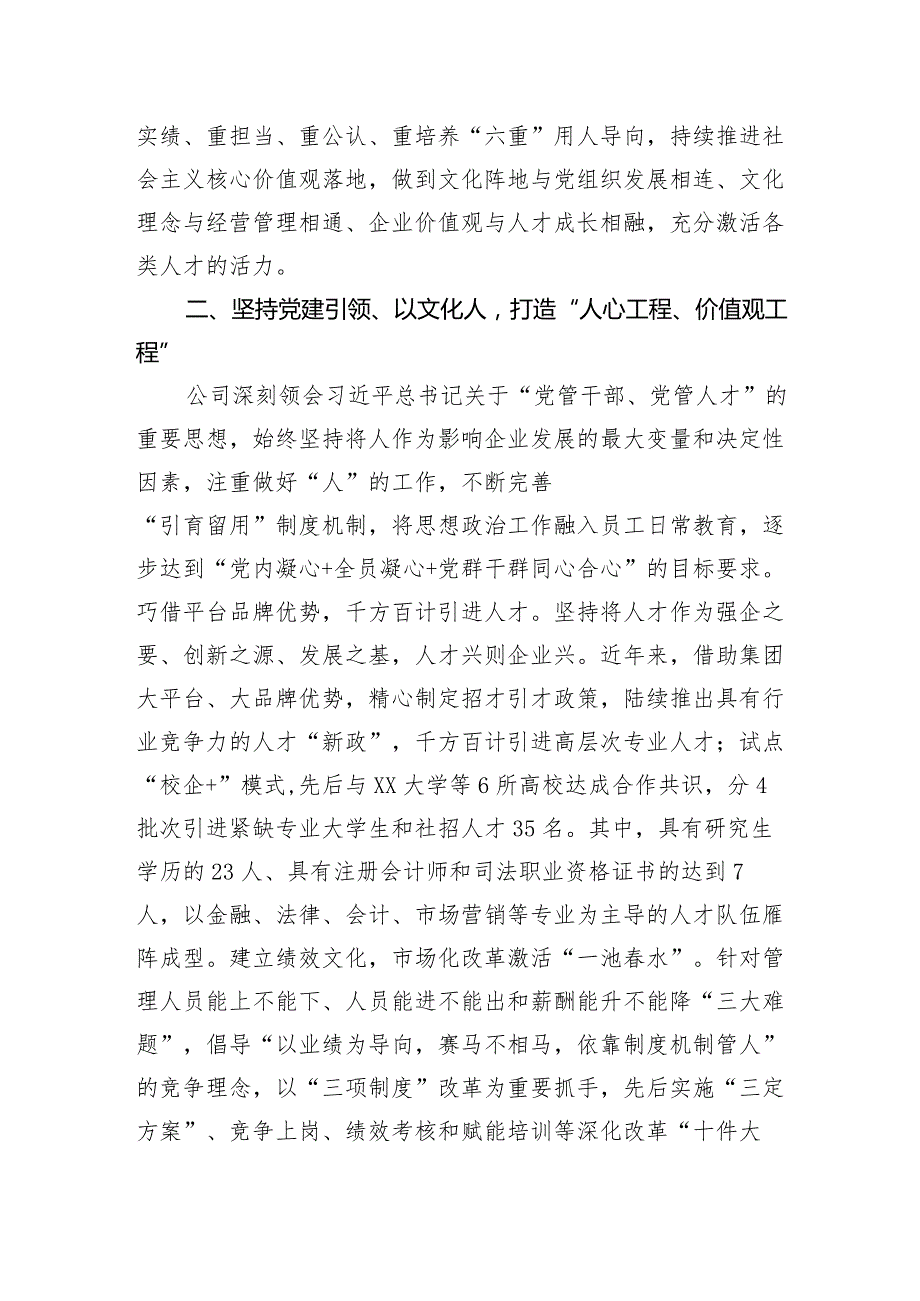 实绩、重担当、重公认、重培养“六重”用人导向，持续推进社
会主义核心价值观落地，做到文化阵地与党组织发展相连、文化
理念与经营管理相通、企业价值观与人才成长相融，充分激活各
类人才的活力。
二、坚持党建引领、以文化人，打造“人心工程、价值观工
程”
公司深刻领会习近平总书记关于“党管干部、党管人才”的
重要思想，始终坚持将人作为影响企业发展的最大变量和决定性
因素，注重做好“人”的工作，不断完善
“引育留用”制度机制，将思想政治工作融入员工日常教育，逐
步达到“党内凝心+全员凝心+党群干群同心合心”的目标要求。
巧借平台品牌优势，千方百计引进人才。坚持将人才作为强企之
要、创新之源、发展之基，人才兴则企业兴。近年来，借助集团
大平台、大品牌优势，精心制定招才引才政策，陆续推出具有行
业竞争力的人才“新政”，千方百计引进高层次专业人才；试点
“校企+”模式,先后与 XX 大学等 6 所高校达成合作共识，分 4
批次引进紧缺专业大学生和社招人才 35 名。其中，具有研究生
学历的 23 人、具有注册会计师和司法职业资格证书的达到 7
人，以金融、法律、会计、市场营销等专业为主导的人才队伍雁
阵成型。建立绩效文化，市场化改革激活“一池春水”。针对管
理人员能上不能下、人员能进不能出和薪酬能升不能降“三大难
题”，倡导“以业绩为导向，赛马不相马，依靠制度机制管人”
的竞争理念，以“三项制度”改革为重要抓手，先后实施“三定
方案”、竞争上岗、绩效考核和赋能培训等深化改革“十件大